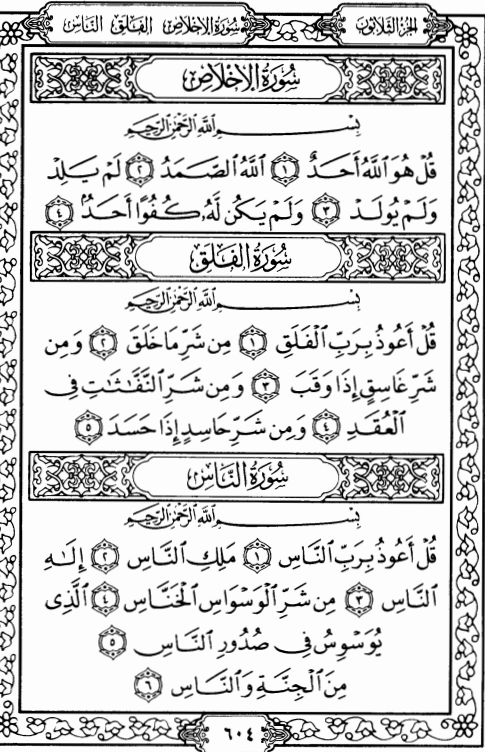 سُورَةُ الإِخْلَاصِ الفَلَقِ النَّاسِ
الجُزْءُ الثَّلَاثُونَ
سُورَةُ الإِخْلَاصِ
بِسْمِ ٱللَّهِ ٱلرَّحْمَٰنِ ٱلرَّحِيمِ
قُلْ هُوَ ٱللَّهُ أَحَدٌ ١ ٱللَّهُ ٱلصَّمَدُ ٢ لَمْ يَلِدْ
وَلَمْ يُولَدْ ٣ وَلَمْ يَكُن لَّهُۥ كُفُوًا أَحَدٌۢ ٤
سُورَةُ الفَلَقِ
بِسْمِ ٱللَّهِ ٱلرَّحْمَٰنِ ٱلرَّحِيمِ
قُلْ أَعُوذُ بِرَبِّ ٱلْفَلَقِ ١ مِن شَرِّ مَا خَلَقَ ٢ وَمِن
شَرِّ غَاسِقٍ إِذَا وَقَبَ ٣ وَمِن شَرِّ ٱلنَّفَّٰثَٰتِ فِى
ٱلْعُقَدِ ٤ وَمِن شَرِّ حَاسِدٍ إِذَا حَسَدَ ٥
سُورَةُ النَّاسِ
بِسْمِ ٱللَّهِ ٱلرَّحْمَٰنِ ٱلرَّحِيمِ
قُلْ أَعُوذُ بِرَبِّ ٱلنَّاسِ ١ مَلِكِ ٱلنَّاسِ ٢ إِلَٰهِ
ٱلنَّاسِ ٣ مِن شَرِّ ٱلْوَسْوَاسِ ٱلْخَنَّاسِ ٤ ٱلَّذِى
يُوَسْوِسُ فِى صُدُورِ ٱلنَّاسِ ٥
مِنَ ٱلْجِنَّةِ وَٱلنَّاسِ ٦
٦٠٤